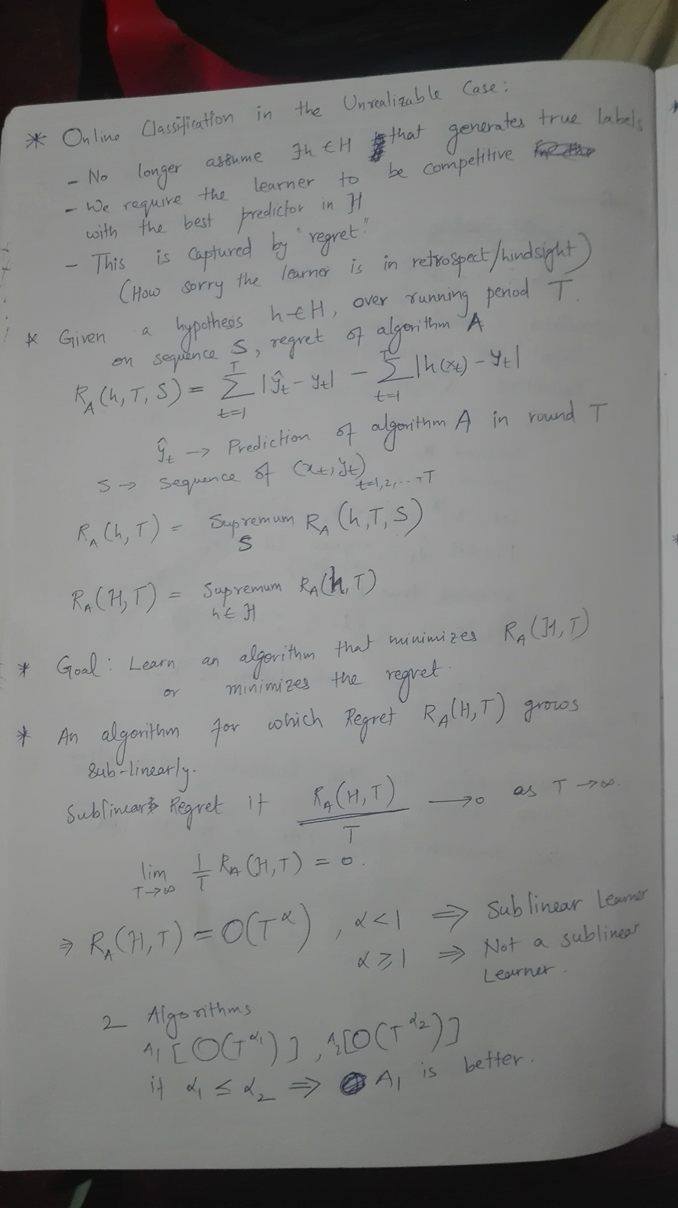 * Online Classification in the Unrealizable Case:
- No longer assume ∃h ∈ H that generates true labels
- We require the learner to be competitive
with the best predictor in H
- This is captured by "regret"
(How sorry the learner is in retrospect/hindsight)
* Given a hypothesis h ∈ H, over running period T.
on sequence S, regret of algorithm A
R_A(h, T, S) = Σ_{t=1}^{T} |ŷ_t - y_t| - Σ_{t=1}^{T} |h(x_t) - y_t|
ŷ_t → Prediction of algorithm A in round T
S → Sequence of (x_t, y_t)_{t=1,2,...,T}
R_A(h, T) = Supremum_S R_A(h, T, S)
R_A(H, T) = Supremum_{h ∈ H} R_A(h, T)
* Goal: Learn an algorithm that minimizes R_A(H, T)
or minimizes the regret.
* An algorithm for which Regret R_A(H, T) grows
sub-linearly.
Sublinear Regret if R_A(H, T)/T → 0 as T → ∞.
lim_{T→∞} 1/T R_A(H, T) = 0.
⇒ R_A(H, T) = O(T^α), α < 1 ⇒ Sublinear Learner
α ≥ 1 ⇒ Not a sublinear
Learner.
2 Algorithms
A_1 [O(T^{α_1})], A_2 [O(T^{α_2})]
if α_1 ≤ α_2 ⇒ A_1 is better.